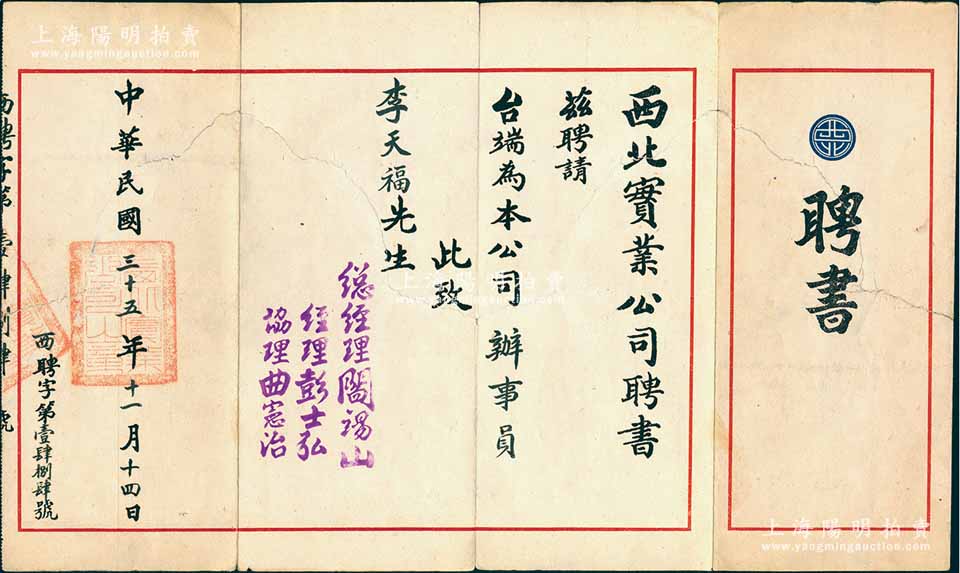 聘書
西北實業公司聘書
茲聘請
台端為本公司辦事員
此致
李天福先生
總經理閻錫山
經理彭士弘
協理曲憲治
中華民國三十五年十一月十四日
西聘字第壹肆捌肆號
西聘字第壹肆捌肆號
上海陽明拍賣
www.yangmingauction.com
上海陽明拍賣
www.yangmingauction.com
上海陽明拍賣
www.yangmingauction.com